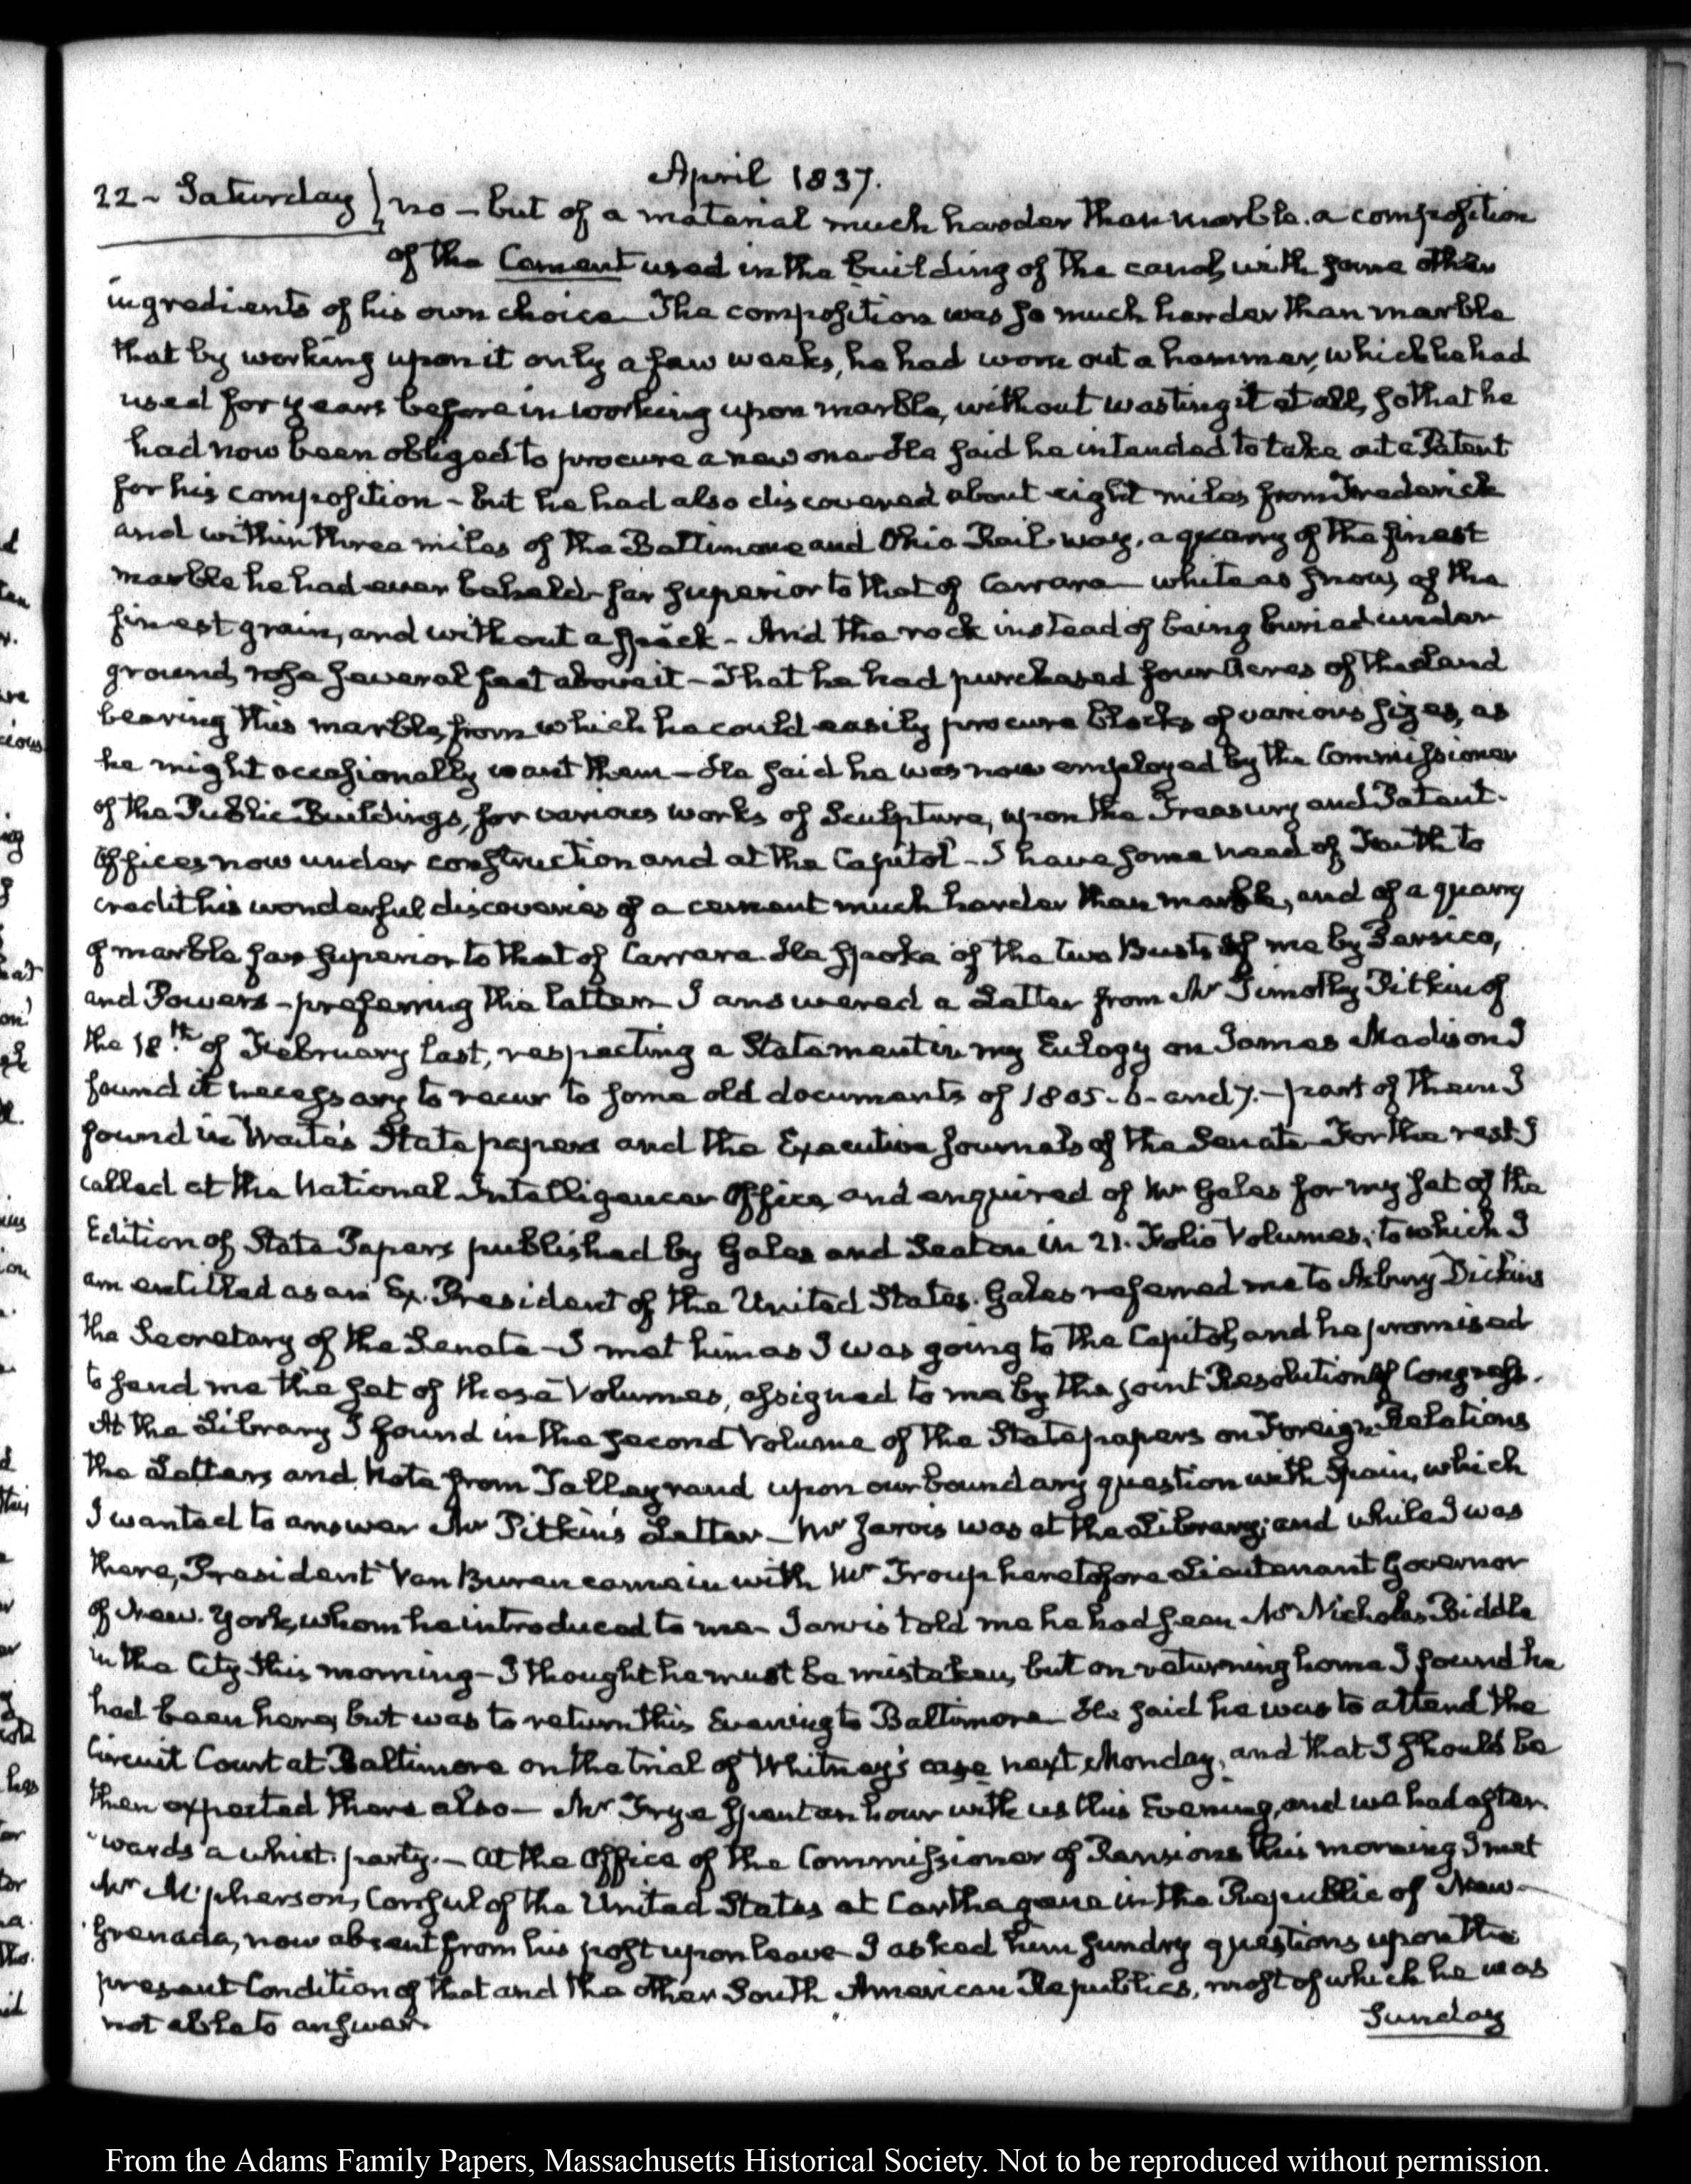 April 1837.
22 - Saturday } no - but of a material much harder than marble. a composition
of the Cement used in the building of the canal, with some other
ingredients of his own choice - The composition was so much harder than marble
that by working upon it only a few weeks, he had worn out a hammer, which he had
used for years before in working upon marble, without wasting it at all, so that he
had now been obliged to procure a new one - He said he intended to take out a Patent
for his composition - but he had also discovered about eight miles from Frederick
and within three miles of the Baltimore and Ohio Rail-way, a quarry of the finest
marble he had ever beheld - far superior to that of Carrara - white as snow, of the
finest grain, and without a speck - And the rock instead of being buried under
ground, rose several feet above it - That he had purchased four Acres of the land
bearing this marble, from which he could easily procure blocks of various sizes, as
he might occasionally want them - He said he was now employed by the Commissioner
of the Public Buildings, for various works of Sculpture, upon the Treasury and Patent-
Offices now under construction and at the Capitol - I have some need of Faith to
credit his wonderful discoveries of a cement much harder than marble, and of a quarry
of marble far superior to that of Carrara. He spoke of the two Busts of me by Persico,
and Powers - preferring the latter - I answered a Letter from Mr Timothy Pitkin of
the 18th. of February last, respecting a Statement in my Eulogy on James Madison I
found it necessary to recur to some old documents of 1805-6- and 7. - part of them I
found in Waite's State papers and the Executive Journals of the Senate - For the rest I
called at the National Intelligencer Office, and enquired of Mr Gales for my set of the
Edition of State Papers published by Gales and Seaton in 21. Folio Volumes; to which I
am entitled as an Ex. President of the United States. Gales referred me to Asbury Dickins
the Secretary of the Senate - I met him as I was going to the Capitol, and he promised
to send me the set of those Volumes, assigned to me by the joint Resolution of Congress.
At the Library I found in the second Volume of the State papers on Foreign Relations
the Letters and Note from Talleyrand upon our boundary question with Spain, which
I wanted to answer Mr Pitkin's Letter - Mr Jarvis was at the Library; and while I was
there, President Van Buren came in with Mr Troup heretofore Lieutenant Governor
of New-York, whom he introduced to me - Jarvis told me he had seen Mr Nicholas Biddle
in the City this morning - I thought he must be mistaken, but on returning home I found he
had been here, but was to return this Evening to Baltimore - He said he was to attend the
Circuit Court at Baltimore on the trial of Whitney's case next Monday, and that I should be
then expected there also - Mr Frye spent an hour with us this Evening, and we had after-
wards a whist-party. - At the Office of the Commissioner of Pensions this morning I met
Mr McPherson, Consul of the United States at Carthagena in the Republic of New-
Grenada, now absent from his post upon leave - I asked him sundry questions upon the
present Condition of that and the other South American Republics, most of which he was
not able to answer.
Sunday
From the Adams Family Papers, Massachusetts Historical Society. Not to be reproduced without permission.